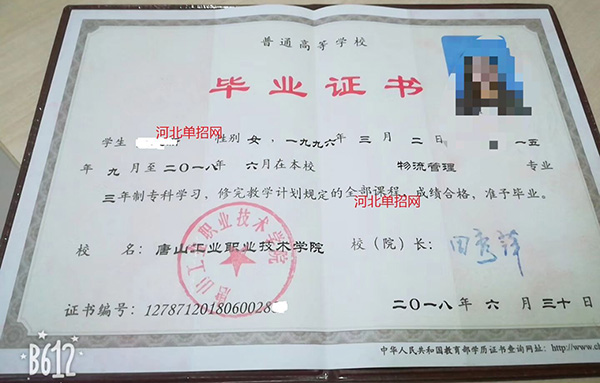 普通高等学校
毕业证书
河北单招网
学生 性别 女，一九九六年 三 月 二 日 一五
年 九 月至二〇一八年 六月在本校 物流管理 专业
三年制专科学习，修完教学计划规定的全部课程，成绩合格，准予毕业。
河北单招网
唐山工业职业技术学院
校 名：唐山工业职业技术学院 校（院）长：
证书编号：1278712018060028
二〇一八年 六 月 三十 日
中华人民共和国教育部学历证书查询网址：http://www.ch
B612